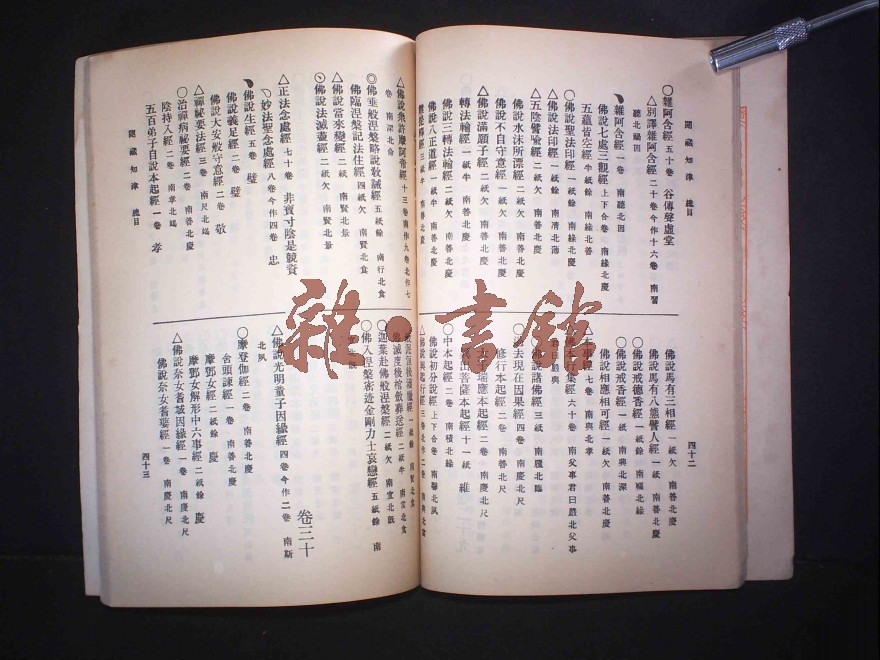 閱藏知津　總目
○雜阿含經 五十卷 谷傳聲虛堂
△別譯雜阿含經 二十卷今作十六卷 南習
聽北禍因
雜阿含經 一卷 南聽北因
佛說七處三觀經 上下合卷 南緣北慶
五蘊皆空經 半紙餘 南緣北善
○佛說聖法印經 一紙餘 南緣北慶
佛說法印經 一紙餘 南清北薄
△五陰譬喻經 二紙欠 南善北慶
佛說水沫所漂經 二紙欠 南善北慶
佛說不自守意經 一紙欠 南善北慶
△佛說滿願子經 二紙欠 南善北慶
轉法輪經 一紙半 南善北慶
佛說三轉法輪經 二紙欠 南善北慶
佛說八正道經 一紙半 南善北慶
佛說馬有三相經 一紙欠 南善北慶
佛說馬有八態譬人經 一紙 南善北慶
○佛說戒德香經 一紙餘
○佛說戒香經 一紙 南興北深
佛說相應相可經 一紙欠 南善北慶
事經 七卷 南與北孝
本行集經 六十卷 南父事君曰嚴北父事
君曰嚴與
佛說諸佛經 三紙
去現在因果經 四卷 南善北尺
修行本起經 二卷 南善北尺
瑞應本起經 二卷 南慶北尺
出菩薩本起經 十一紙
○中本起經 二卷 南積北緣
佛說初分說經 上下合卷 南馨北夙
四十二
△佛說眾許摩訶帝經 十三卷南作九卷北作七
卷 南深北命
◎佛垂般涅槃略說教誡經 五紙餘 南行北食
佛臨涅槃記法住經 四紙欠 南賢北食
△佛說當來變經 二紙 南賢北景
佛說法滅盡經 二紙欠 南賢北景
△正法念處經 七十卷 非寶寸陰是競資
妙法聖念處經 八卷今作四卷 忠
佛說生經 五卷 璧
佛說義足經 二卷 敬
佛說大安般守意經 二卷 璧
△禪祕要法經 三卷 南尺北竭
○治禪病祕要經 二卷 南善北慶
陰持入經 二卷 南孝北竭
五百弟子自說本起經 一卷 孝
閱藏知津　總目
佛滅度後棺斂葬送經 二紙半 南當北食
迦葉赴佛般涅槃經 二紙欠 南宜北
○佛入涅槃密迹金剛力士哀戀經 五紙餘 南
卷三十
△佛說光明童子因緣經 四卷今作二卷 南斯
北夙
○摩登伽經 二卷 南善北慶
舍頭諫經 一卷 南善北慶
摩鄧女經 二紙餘 慶
摩鄧女解形中六事經 二紙餘 慶
△佛說奈女耆域因緣經 一卷 南慶北尺
佛說奈女耆婆經 一卷 南慶北尺
四十三
雜·書館